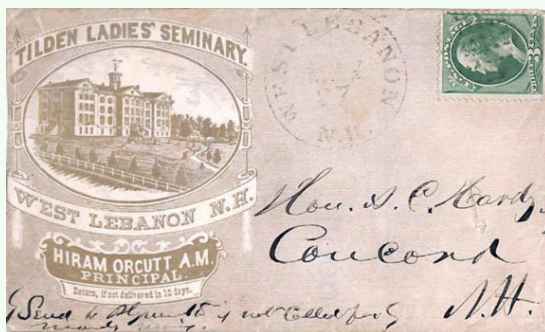 TILDEN LADIES' SEMINARY.
WEST LEBANON N.H.
HIRAM ORCUTT, A.M.
PRINCIPAL.
Return, if not delivered in 10 days.
WEST LEBANON
N.H.
U.S. POSTAGE
Hon. A. C. Hardy
Concord
N.H.
Send to Plymouth if not Called for